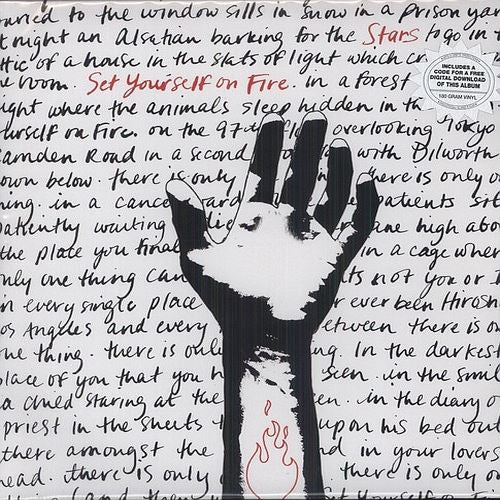 to the window sills in snow in a prison ya
t night an Alsatian barking for the Stars to go in t
ttic of a house in the slats of light which cr
he room. Set Yourself on Fire. in a forest
ight where the animals sleep hidden in th
urself on Fire. on the 97th overlooking Tokyo
amden Road in a second with Dilworth
own below. there is only here is only o
hing. in a cance ard patients sit
patiently waiting die ane high abo
the place you final in a cage wher
nly one thing can ts not you or I
n every single place r ever been Hirosh
os Angeles and every etween there is o
ne thing. there is only ng. In the darkes
place of you that you h seen. in the smil
a child staring at the en. in the diary o
priest in the sheets t upon his bed out
there amongst the d in your lovers
head. there is only o there is only o
INCLUDES A
CODE FOR A FREE
DIGITAL DOWNLOAD
OF THIS ALBUM
180 GRAM VINYL